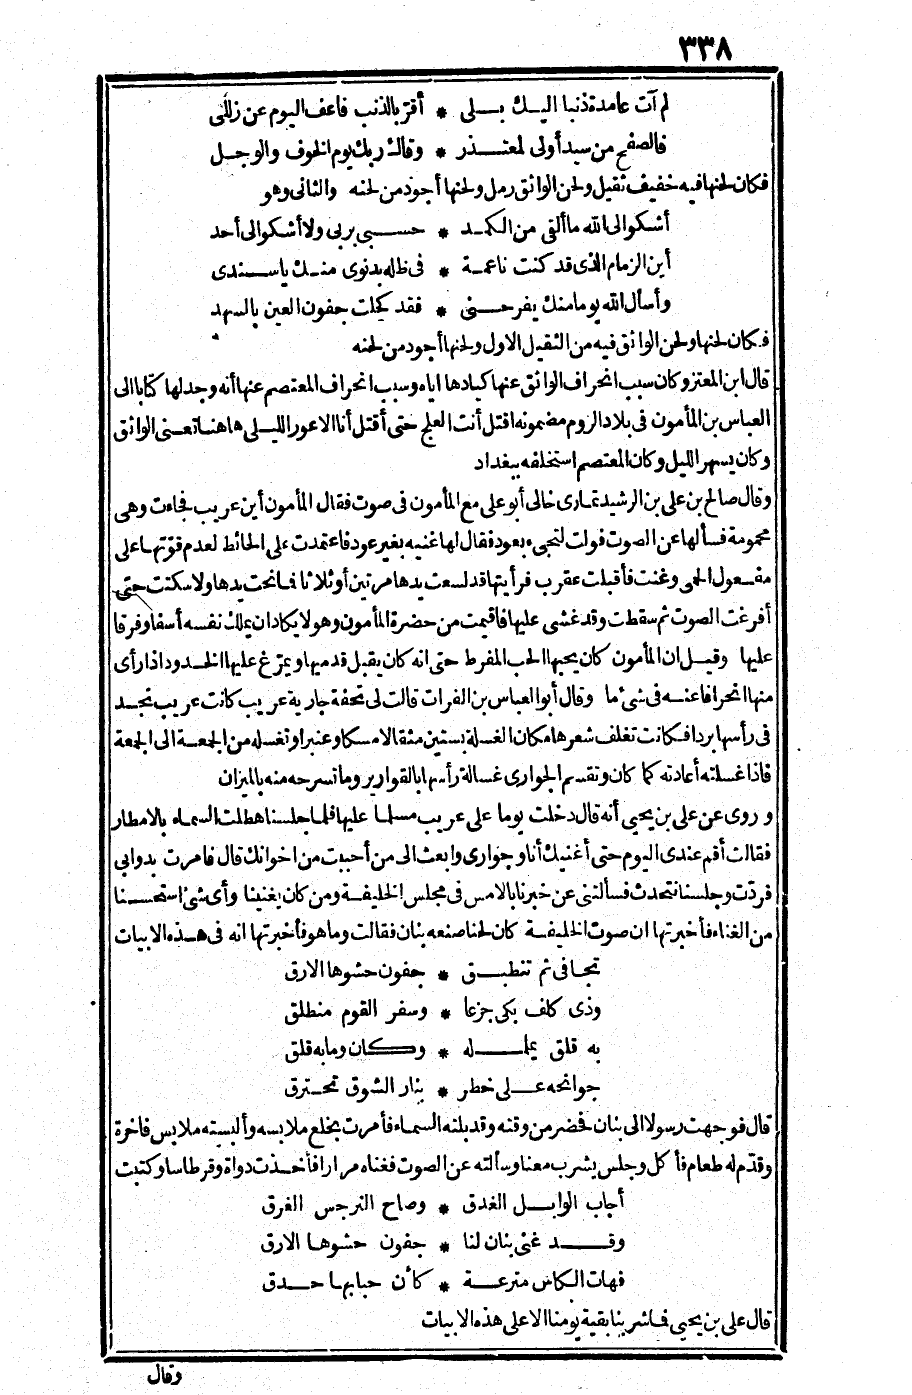 ٣٣٨
لم آت عامدة ذنبا اليك بلى * أقر بالذنب فاعف اليوم عن زللى
فالصفح من سيد أولى لمعتذر * وقاك ربك يوم الخوف والوجل
فكان لحنها فيه خفيف ثقيل ولحن الواثق رمل ولحنها أجود من لحنه والثانى وهو
أشكو الى الله ما ألقى من الكمد * حسبى بربى ولا أشكو الى أحد
أين الزمام الذى قد كنت ناعمة * فى ظله بدنوى منك ياسندى
وأسأل الله يوما منك يفرحنى * فقد كحلت جفون العين بالسهد
فكان لحنها ولحن الواثق فيه من الثقيل الاول ولحنها أجود من لحنه
قال ابن المعتز وكان سبب انحراف الواثق عنها كيادها اياه وسبب انحراف المعتصم عنها أنه وجد لها كتابا الى
العباس بن المأمون فى بلاد الروم مضمونه اقتل أنت العلج حتى أقتل أنا الاعور الليلى هاهنا تعنى الواثق
وكان يسهر الليل وكان المعتصم استخلفه ببغداد
وقال صالح بن على بن الرشيد تمارى خالى أبو على مع المأمون فى صوت فقال المأمون أين عريب فجاءت وهى
محمومة فسألها عن الصوت فولت لتجىء بعود فقال لها غنيه بغير عود فاعتمدت على الحائط لعدم قوتها على
مفعول الحمى وغنت فأقبلت عقرب فرأيتها قد لسعت يدها مرتين أو ثلاثا فانحت يدها ولا سكتت حتى
أفرغت الصوت ثم سقطت وقد غشى عليها فاقيمت من حضرة المأمون وهو لا يكاد ان يملك نفسه أسفا وفرقا
عليها وقيل ان المأمون كان يحبها الحب المفرط حتى انه كان يقبل قدميها ويمرغ عليها الخدود اذا رأى
منها انحرافا عنه فى شىء ما وقال أبو العباس بن الفرات قالت لى تحفة جارية عريب كانت عريب تجد
فى رأسها بردا فكانت تغلف شعرها مكان الغسلة بستين مثقالا مسكا وعنبرا وتغسله من الجمعة الى الجمعة
فاذا غسلته أعادته كما كان وتقسم الجوارى غسالة رأسها بالقوارير وما تسرحه منه بالميزان
وروى عن على بن يحيى أنه قال دخلت يوما على عريب مسلما عليها فلما جلسنا هطلت السماء بالامطار
فقالت أقم عندى اليوم حتى أغنيك أنا وجوارى وابعث الى من أحببت من اخوانك قال فامرت بدوابى
فردت وجلسنا نتحدث فسألتنى عن خبرنا بالامس فى مجلس الخليفة ومن كان يغنينا وأى شئ استحسنا
من الغناء فأخبرتها ان صوت الخليفة كان لحنا صنعه بنان فقالت وما هو فأخبرتها انه فى هذه الابيات
تجافى ثم تنطبق * جفون حشوها الارق
وذى كلف بكى جزعا * وسفر القوم منطلق
به قلق يململه * وكان وما به قلق
جوانحه على خطر * بنار الشوق تحترق
قال فوجهت رسولا الى بنان فحضر من وقته وقد بلته السماء فأمرت بخلع ملابسه وألبسته ملابس فاخرة
وقدم له طعام فأكل وجلس يشرب معنا وسألته عن الصوت فغناه مرارا فأخذت دواة وقرطاسا وكتبت
أجاب الوابل الغدق * وصاح النرجس الغرق
وقد غنى بنان لنا * جفون حشوها الارق
فهات الكاس مترعة * كأن حبابها حدق
قال على بن يحيى فما شربنا بقية يومنا الا على هذه الابيات
وقال